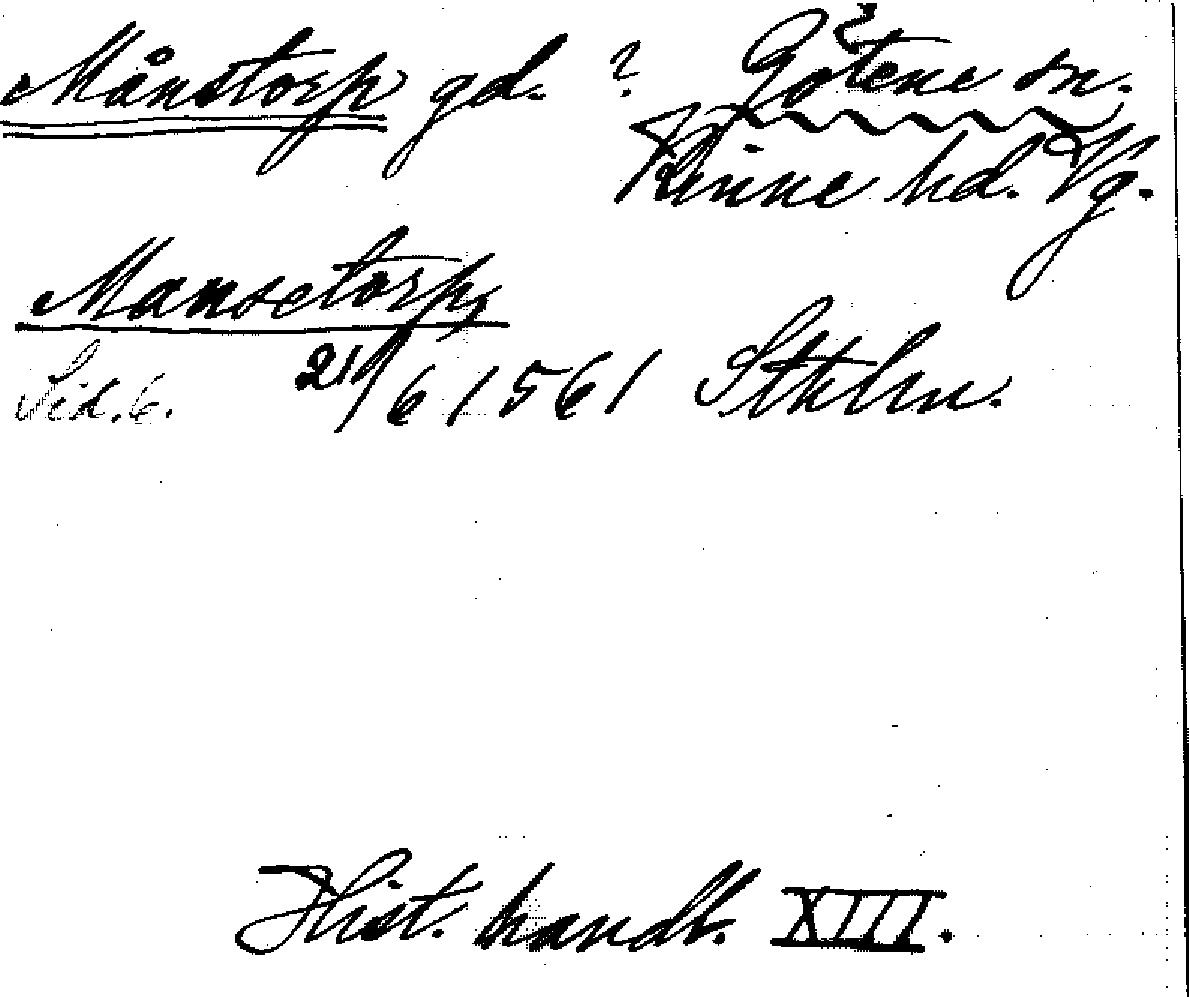 Månstorp gd. ? Götene sn.
Kinne hd. Vg.
Mansetorp,
Sid. 6. 21/6 1561 Sthlm.
Hist. handl. XIII.